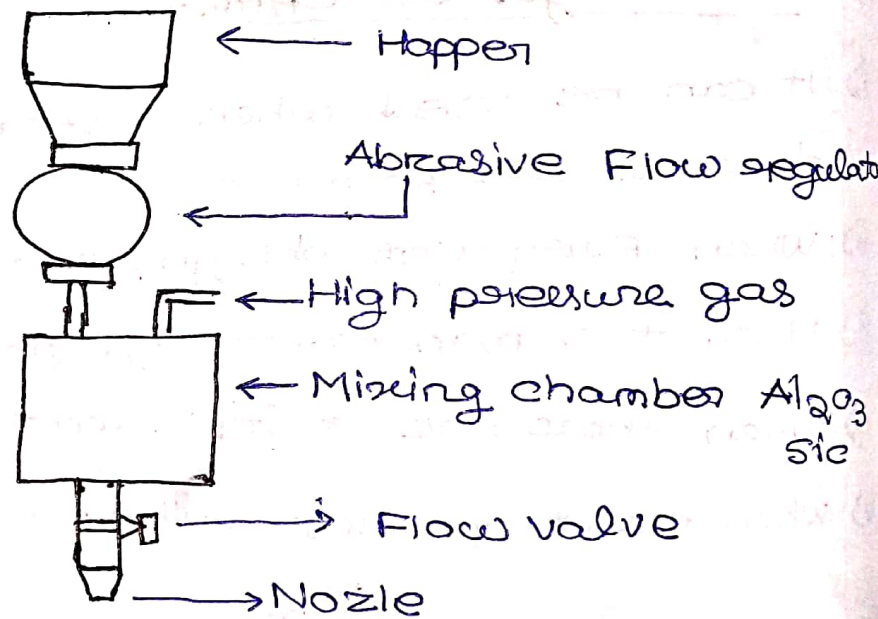 Hopper
Abrasive Flow regulato
High pressure gas
Mixing chamber Al₂O₃
Sic
Flow valve
Nozle